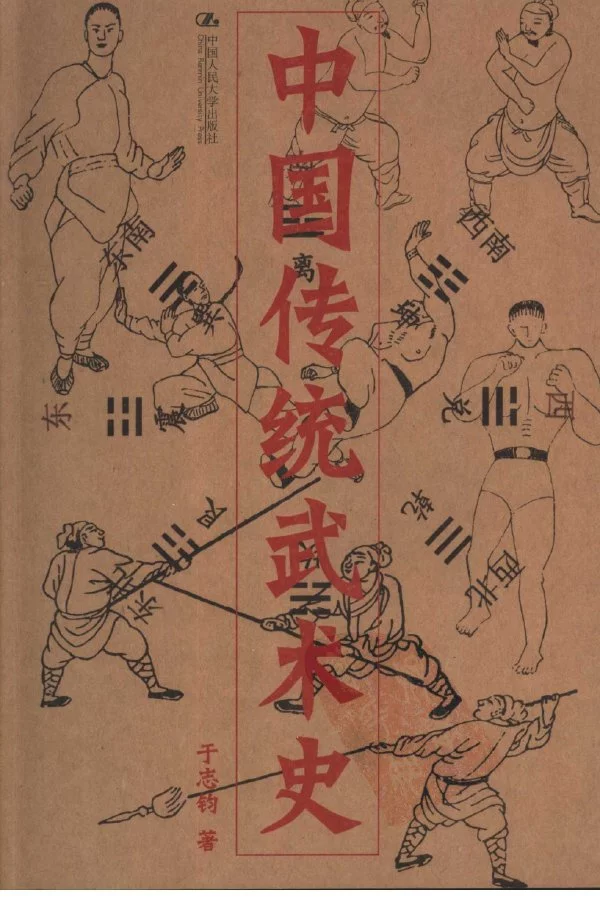 中国人民大学出版社
China Renmin University Press
中国传统武术史
于志钧 著
东南
西南
离
巽
坤
东
震
兑
西
艮
乾
东
坎
西北